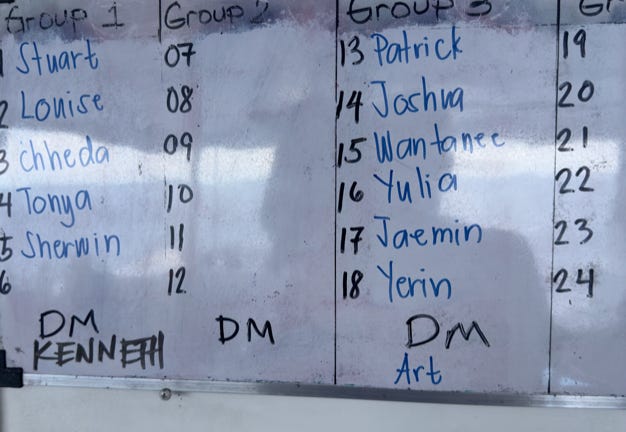 Group 1
1 Stuart
2 Louise
3 chheda
4 Tonya
5 Sherwin
6
DM
KENNETH
Group 2
07
08
09
10
11
12
DM
Group 3
13 Patrick
14 Joshua
15 Wantanee
16 Yulia
17 Jaemin
18 Yerin
DM
Art
Gr
19
20
21
22
23
24